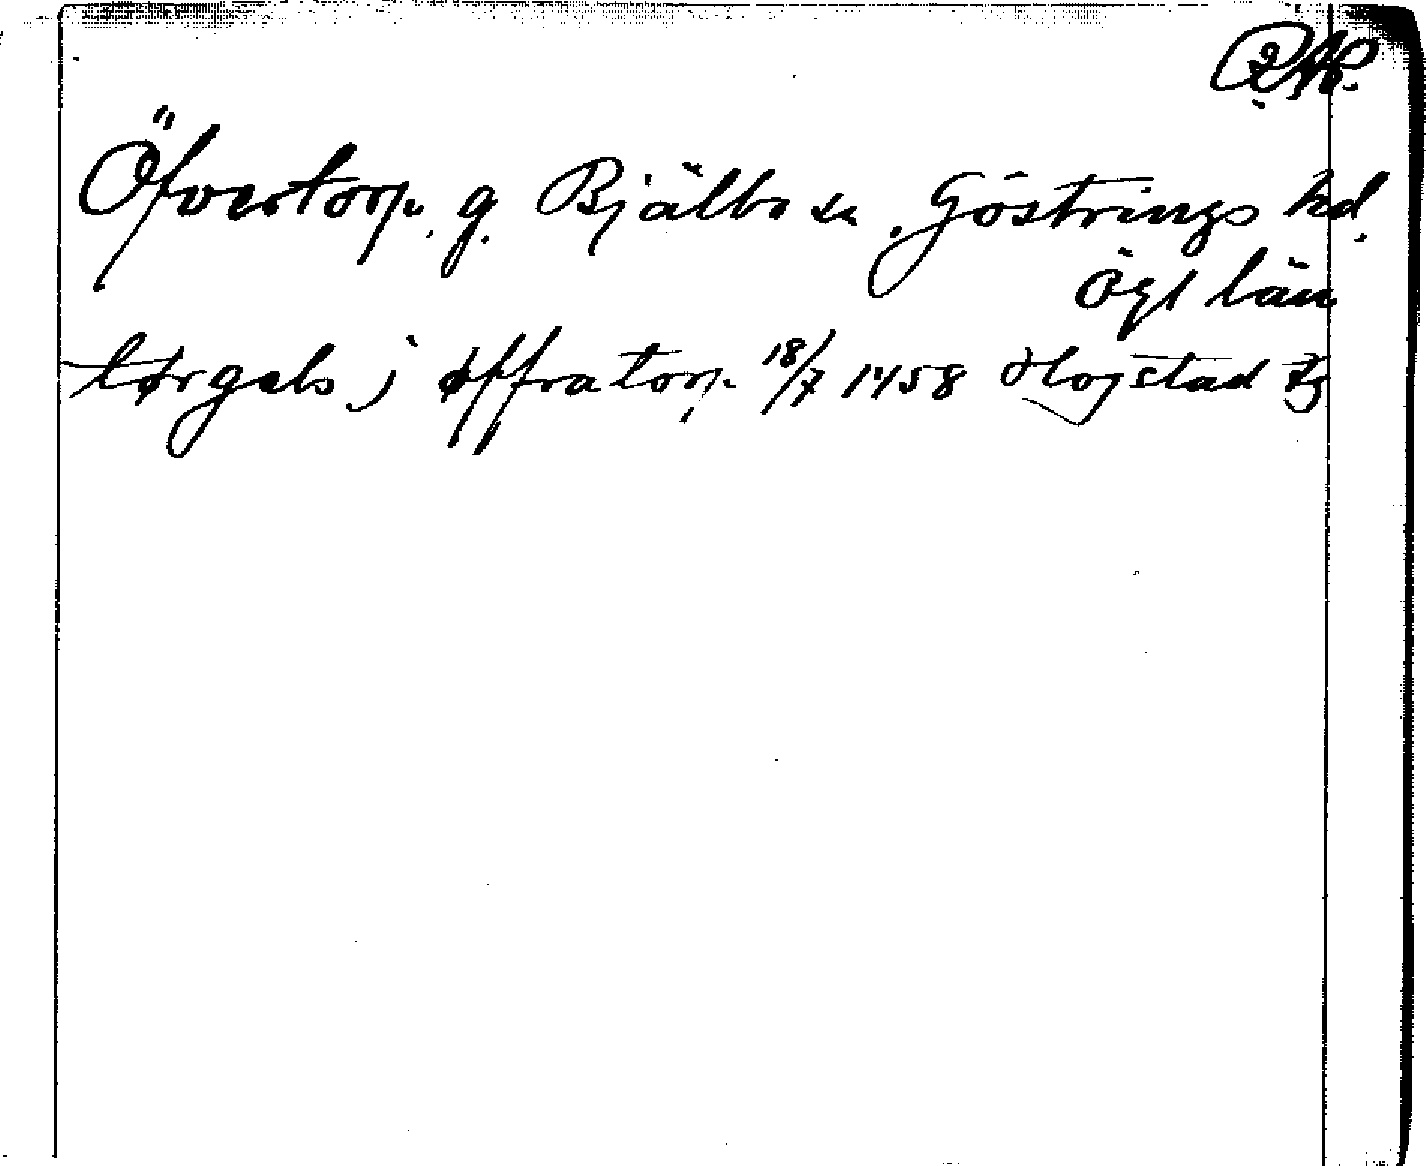 Öfvertorp. g. Bjälbo sn. Göstrings hd.
Ögl län
tørgels j øffratorp. 18/7 1458 Hogstad